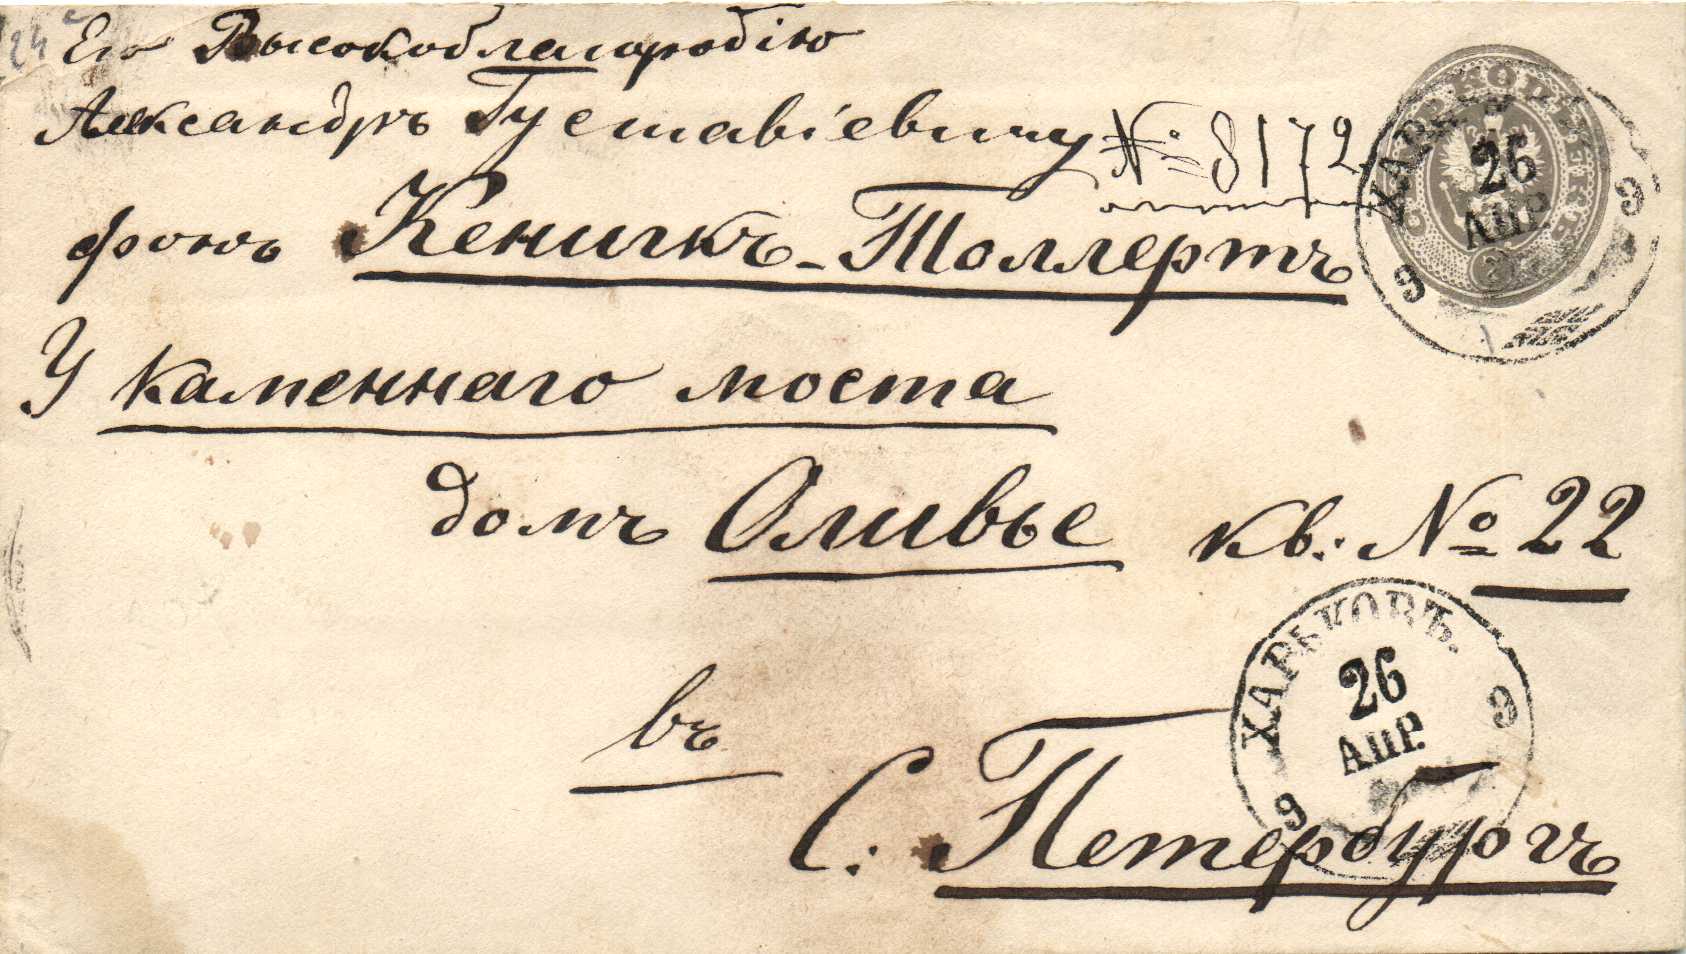 24
Его Высокоблагородію
Александръ Густавіевичу
№ 8172
фонъ Кенигкъ-Толлертъ
У каменнаго моста
домъ Оливье кв: № 22
въ
С. Петербургъ
ХАРЬКОВЪ
26
АПР.
9
9
ХАРЬКОВЪ.
26
АПР.
9
9